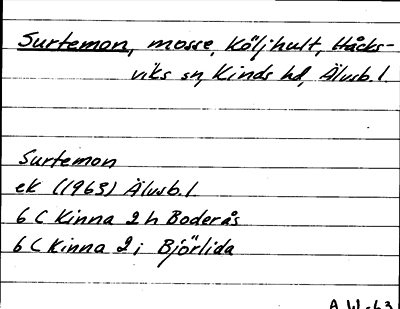 Surtemon, mosse, Köljhult, Håcks-
viks sn, Kinds hd, Älvsb. l.
Surtemon
ek (1963) Älvsb. l
6 C Kinna 2 h Boderås
6 C Kinna 2 i Björlida
A.W. -63